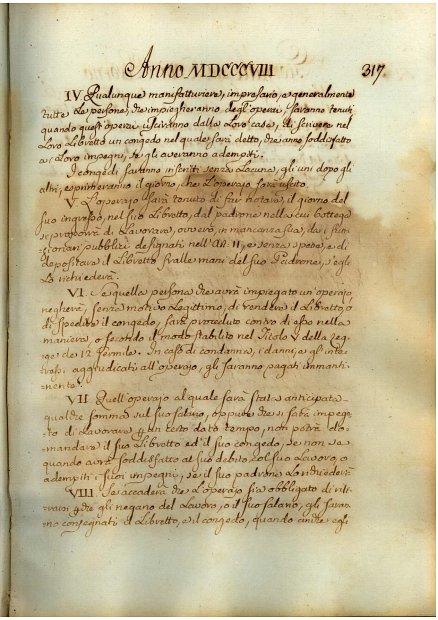 Anno MDCCCVIII 317
IV. Qualunque manifatturiere, impresario, e generalmente
tutte le persone, che impiegheranno degl'operai, saranno tenuti
quando questi operai usciranno dalla loro casa, di scrivere nel
loro Libretto un congedo nel quale sarà detto, che anno soddisfatto
a' loro impegni, se gli averanno adempiti.
I congedi saranno inscritti senza Lacuna, gli uni dopo gli
altri, espimeranno il giorno, che l'operajo sarà uscito.
V. L'operajo sarà tenuto di far notare, il giorno del
suo ingresso, nel suo Libretto, dal padrone nella cui bottega
si proporrà di Lavorare, ovvero, in mancanza sua, da i funzionari
pubblici designati nell'art. II, e senza spese, e di
depositare il Libretto sralle mani del suo Padrone, s'egli
Lo richiederà.
VI. Se quella persona che avrà impiegato un'operajo
negherà, senza motivo Legittimo, di rendere il Libretto, o
di spedire il congedo, sarà proceduto contro di essa nella
maniera, o secondo il modo stabilito nel Titolo V della Legge
de 12 fermile. In caso di condanna, i danni, e gl'interessi,
aggiudicati all'operajo, gli saranno pagati immantinente.
VII Quell'operajo al quale sarà stata anticipata
qualche somma sul suo salario, oppure che si sarà impegnato
di Lavorare un certo dato tempo, non potrà domandare
il suo Libretto ed il suo congedo, se non se
quando avrà soddisfatto al suo debito col suo Lavoro, o
adempiti i suoi impegni, se il suo padrone Lo richiederà
VIII Se accaderà che L'operajo sia obbligato di ritirarsi
che gli negano del Lavoro, o il suo salario, gli saranno
consegnati il Libretto, e il congedo, quando anche egli